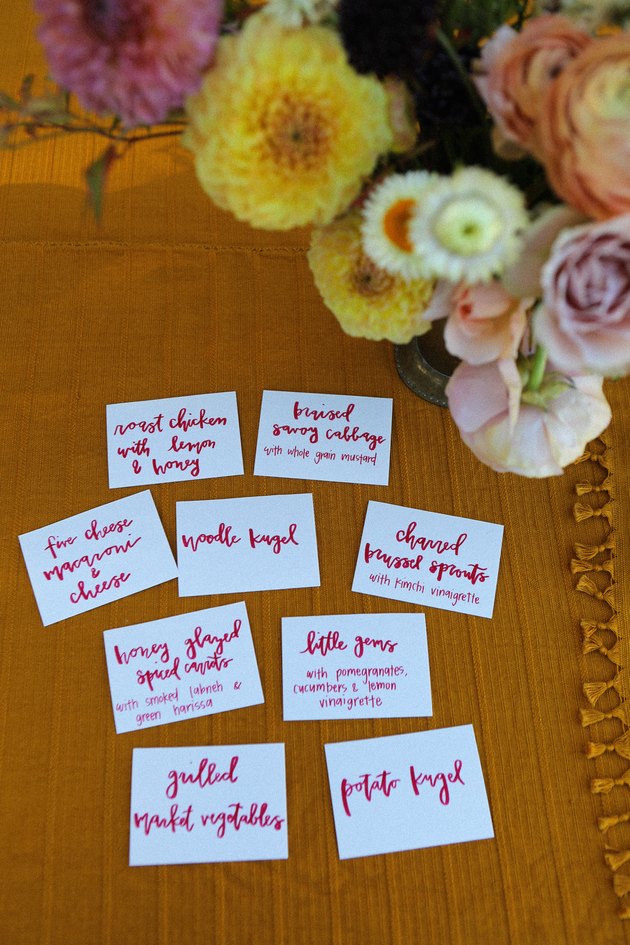 roast chicken
with lemon
& honey
braised
savoy cabbage
with whole grain mustard
five cheese
macaroni
&
cheese
noodle kugel
charred
brussel sprouts
with kimchi vinaigrette
honey glazed
spiced carrots
with smoked labneh &
green harissa
little gems
with pomegranates,
cucumbers & lemon
vinaigrette
grilled
market vegetables
potato kugel